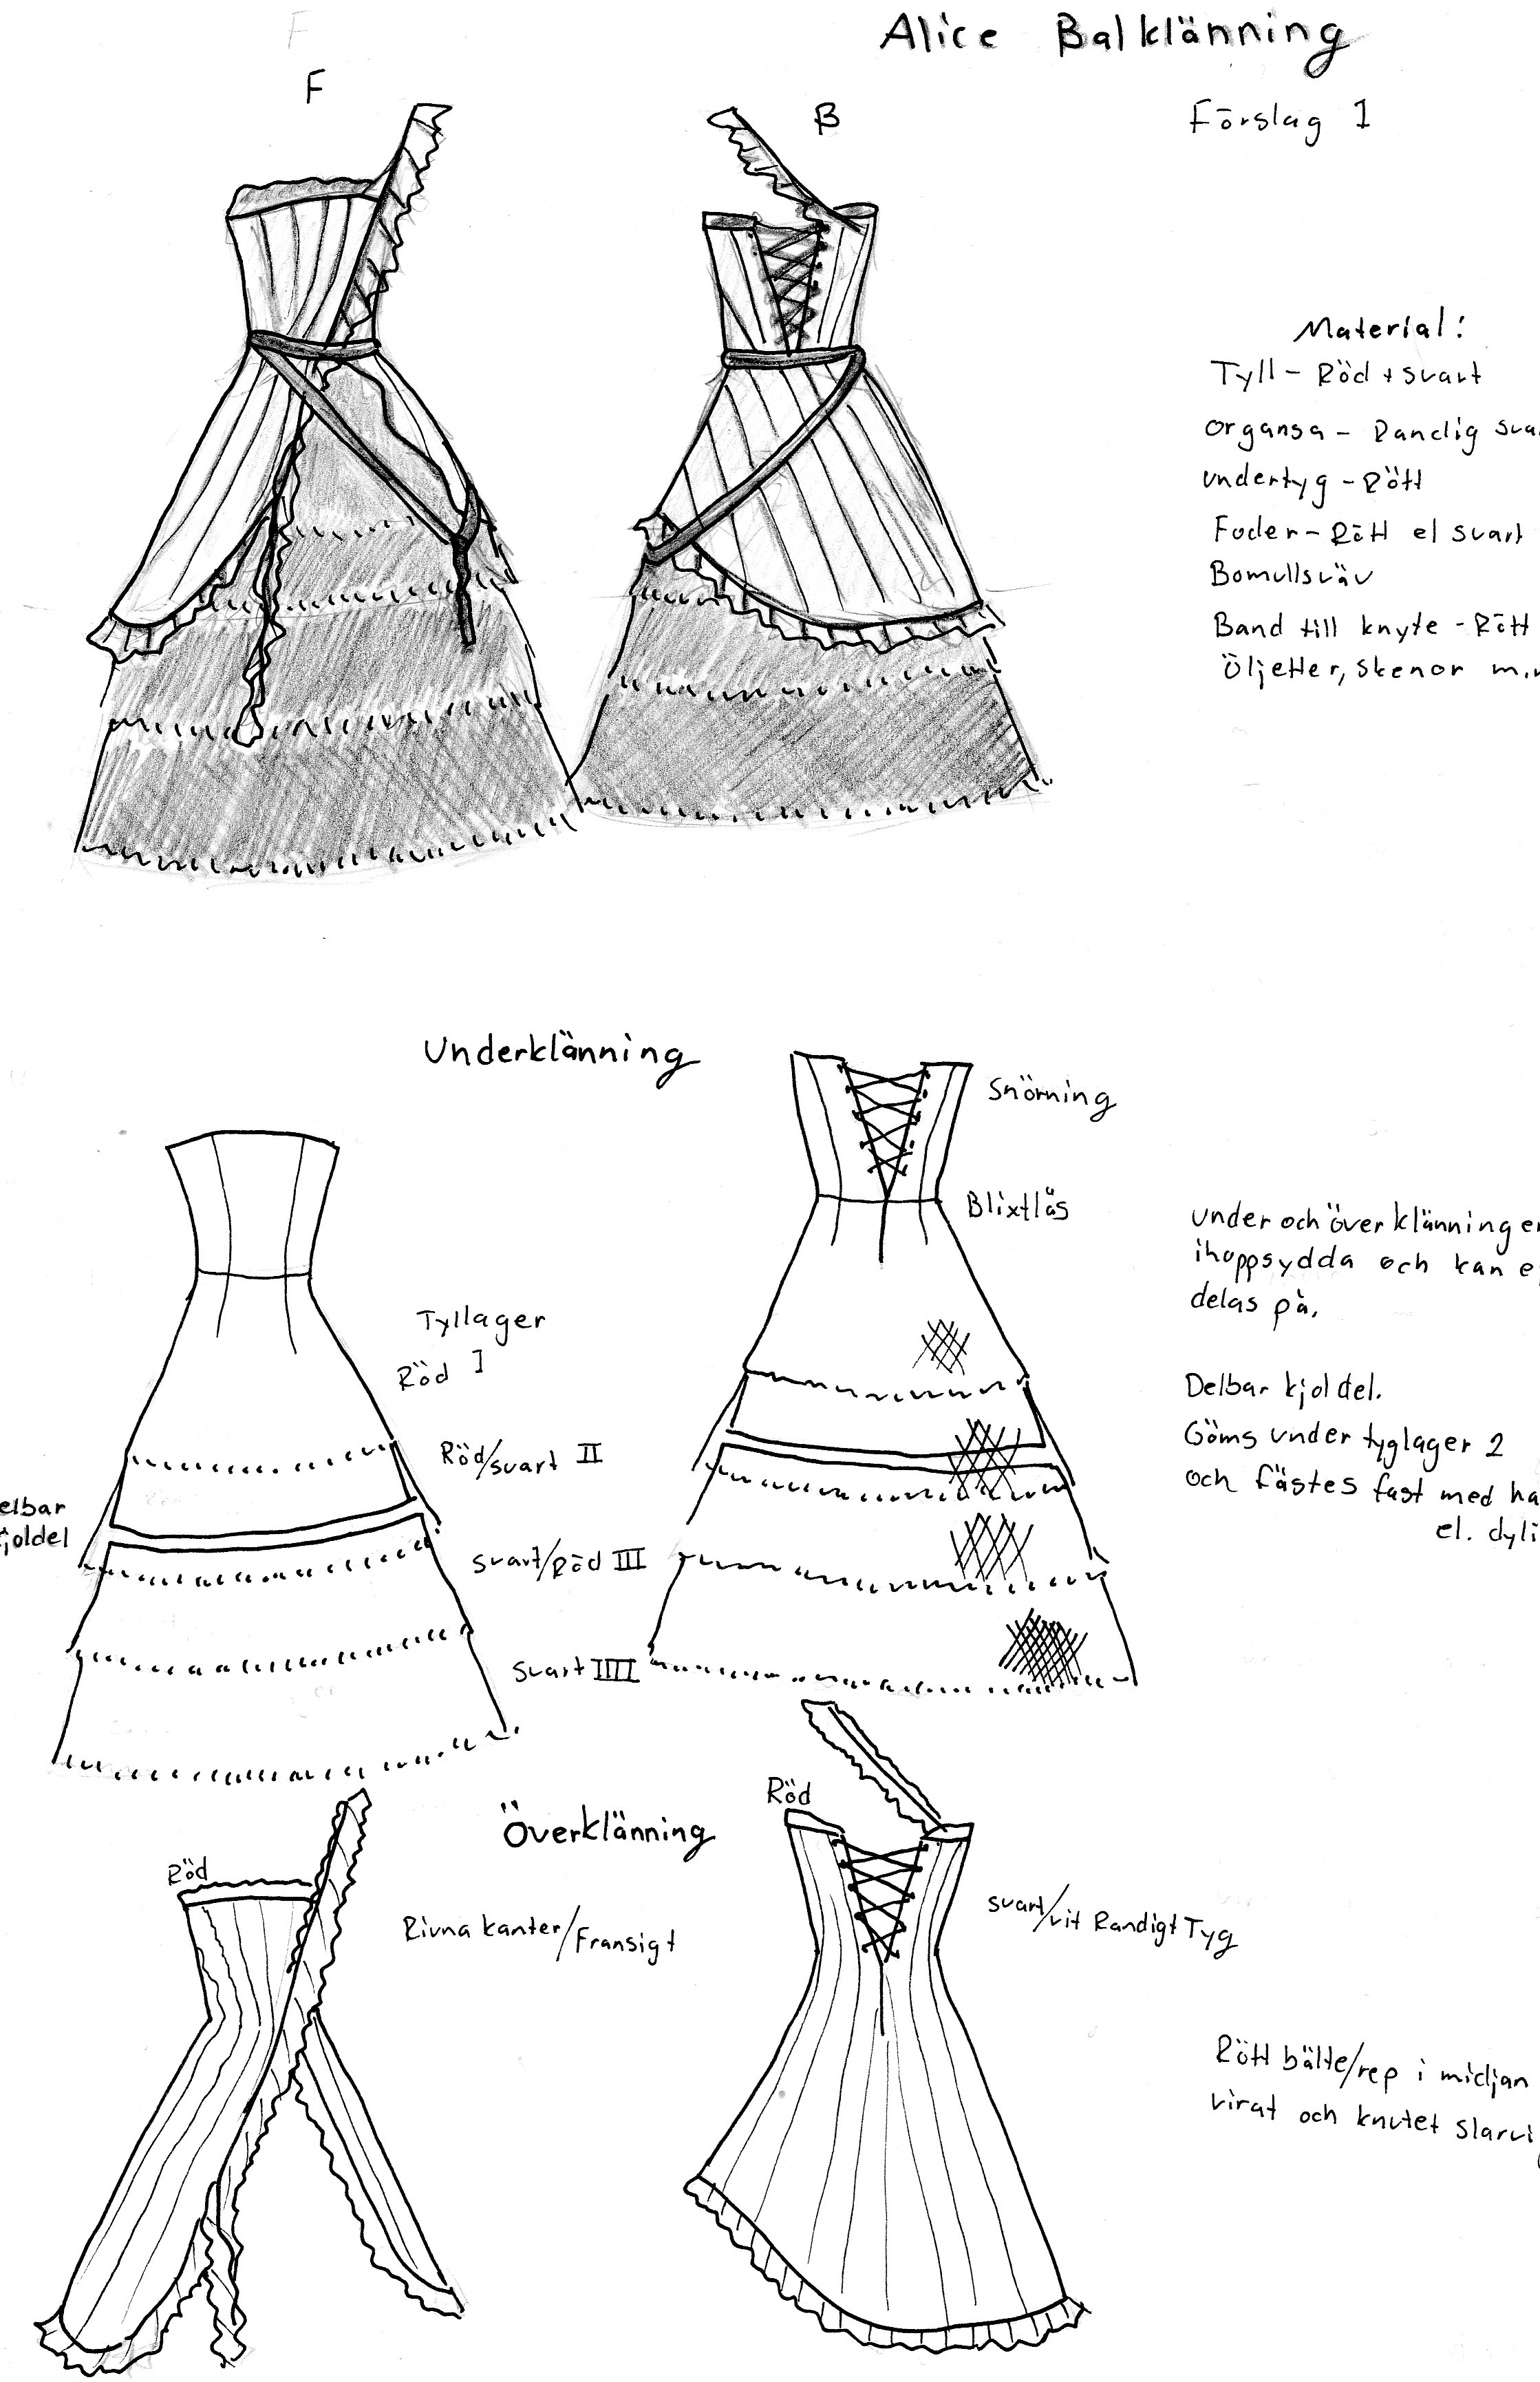 Alice Balklänning
F
F
B
Förslag 1
Material:
Tyll - Röd + svart
organsa - Randig sva
undertyg - Rött
Foder - Rött el svart
Bomullsväv
Band till knyte - Rött
Öljetter, skenor m.
Underklänning
Snörning
Blixtlås
under och över klänning e
ihoppsydda och kan e
delas på.
Tyllager
Röd I
Delbar kjoldel.
Göms under tyglager 2
och fästes fast med ha
el. dyli
Röd/svart II
elbar
joldel
svart/Röd III
svart IIII
Röd
Överklänning
Röd
Rivna kanter/Fransigt
svart/vit Randigt Tyg
Rött bälte/rep i midjan
virat och knutet slarvi